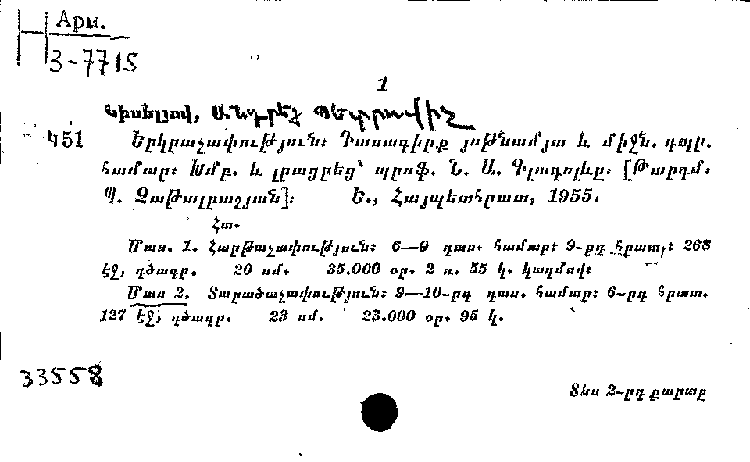 Н Арм.
3-7715
1
Կիսելյով, Անդրեյ Պետրովիչ
451 Երկրաչափություն: Դասագիրք յոթնամյա և միջն. դպր.
համար: Խմբ. և լրացրեց՝ պրոֆ. Ն. Ա. Գլագոլևը. [Թարգմ.
Պ. Զաթալբաշյան]: Ե., Հայպետհրատ, 1955.
Հտ.
Մաս. 1. Հարթաչափություն: 6—9 դաս. համար: 9-րդ հրատ: 268
էջ, գծագր. 20 սմ. 35.000 օր. 2 ռ. 55 կ. կազմով:
Մաս 2. Տարածաչափություն: 9—10-րդ դաս. համար: 6-րդ հրատ.
127 էջ, գծագր. 23 սմ. 23.000 օր. 95 կ.
33558
Տես 2-րդ քարտը